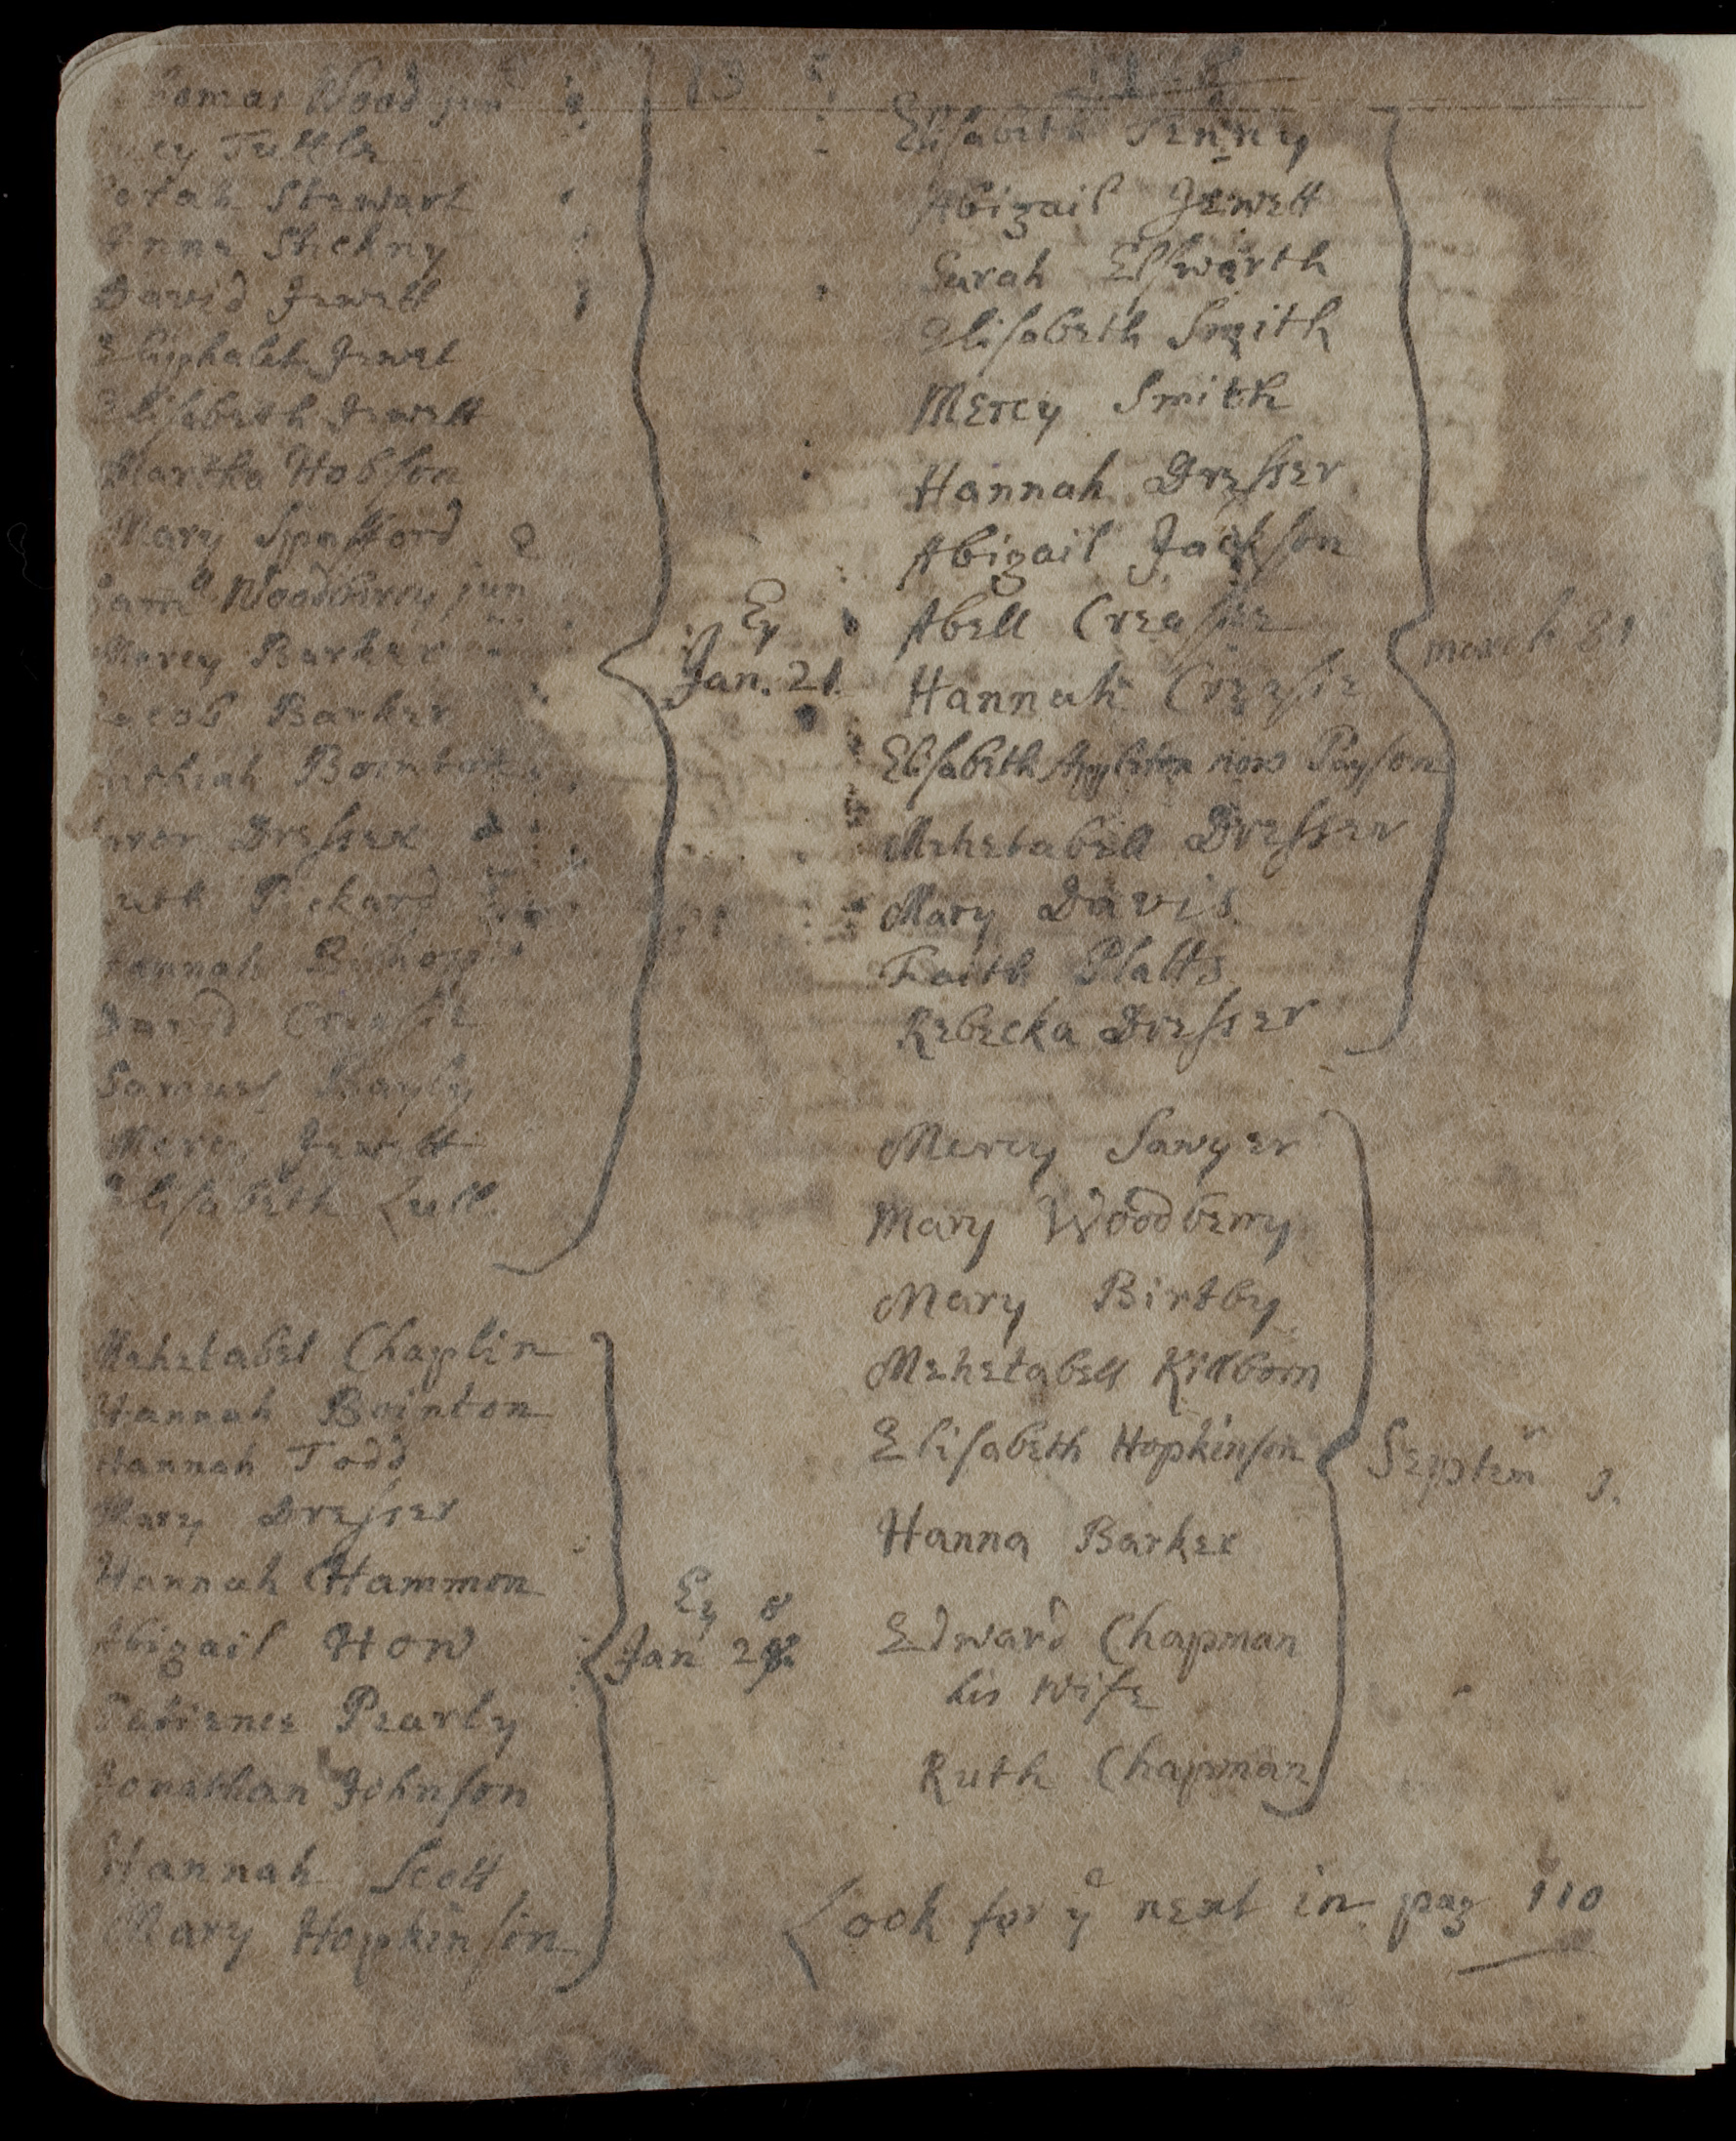 Thomas Wood jun
Tuttle
Sarah Stewart
Anna Stickny
David Jewett
Eliphalet Jewet
Elisabeth Jewett
Martha Hobson
Mary Spafford
Sam ll Woodberry jun
Mercy Barker
Jacob Barker
Bointon
Dresser
Pickard
Hannah
David Creasie
Samuel
Mercy Jewett
Elisabeth Lull
Jan. 21.
Mehetabel Chaplin
Hannah Bointon
Hannah Todd
Mary Dresser
Hannah Hammon
Abigail How
Patience Pearly
Jonathan Johnson
Hannah Scott
Mary Hopkinson
Jan 28
13
Elisabeth Tenny
Abigail Jewett
Sarah Elswarth
Elisabeth Smith
Mercy Smith
Hannah Dresser
Abigail Jackson
Abell Creasie
Hannah Creesie
Elisabeth Appleton now Payson
Mehetabell Dresser
Mary Davis
Faith Platts
Rebecka Dresser
march
Mercy Sawyer
Mary Woodberry
Mary Birtby
Mehetabell Kilborn
Elisabeth Hopkinson
Hanna Barker
Edward Chapman
his wife
Ruth Chapman
Look for ye next in pag 110